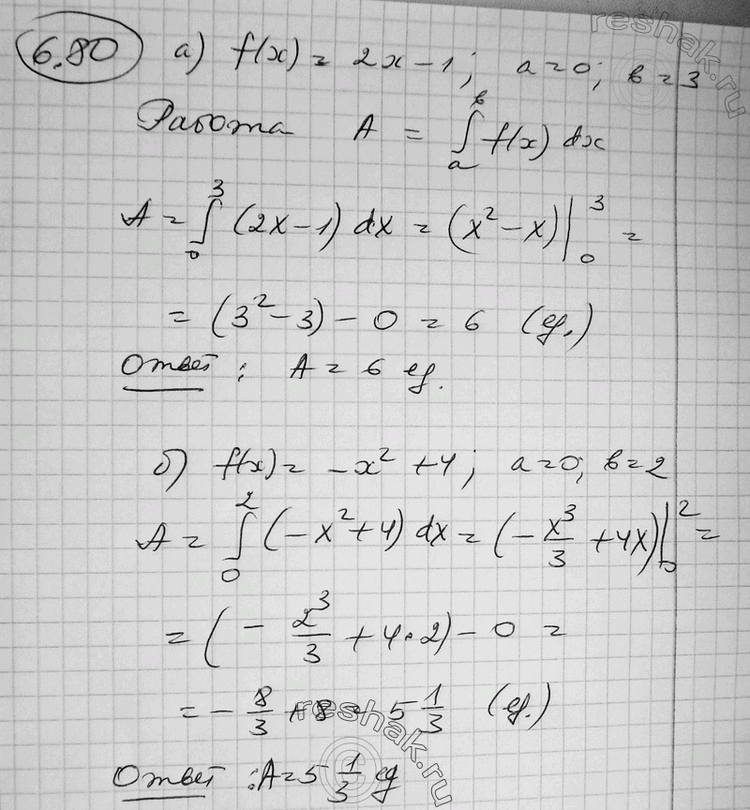 6.80 а) f(x) = 2x - 1; a = 0; b = 3
Работа A = ∫ₐᵇ f(x) dx
A = ∫₀³ (2x - 1) dx = (x² - x)|₀³ =
= (3² - 3) - 0 = 6 (ед.)
Ответ: A = 6 ед.
б) f(x) = -x² + 4; a = 0; b = 2
A = ∫₀² (-x² + 4) dx = (-x³/3 + 4x)|₀² =
= (- 2³/3 + 4·2) - 0 =
= - 8/3 + 8 = 5 1/3 (ед.)
Ответ: A = 5 1/3 ед
reshak.ru
reshak.ru